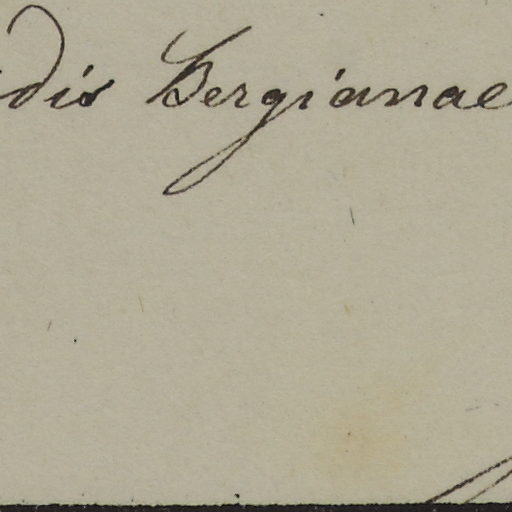 dis Bergianae